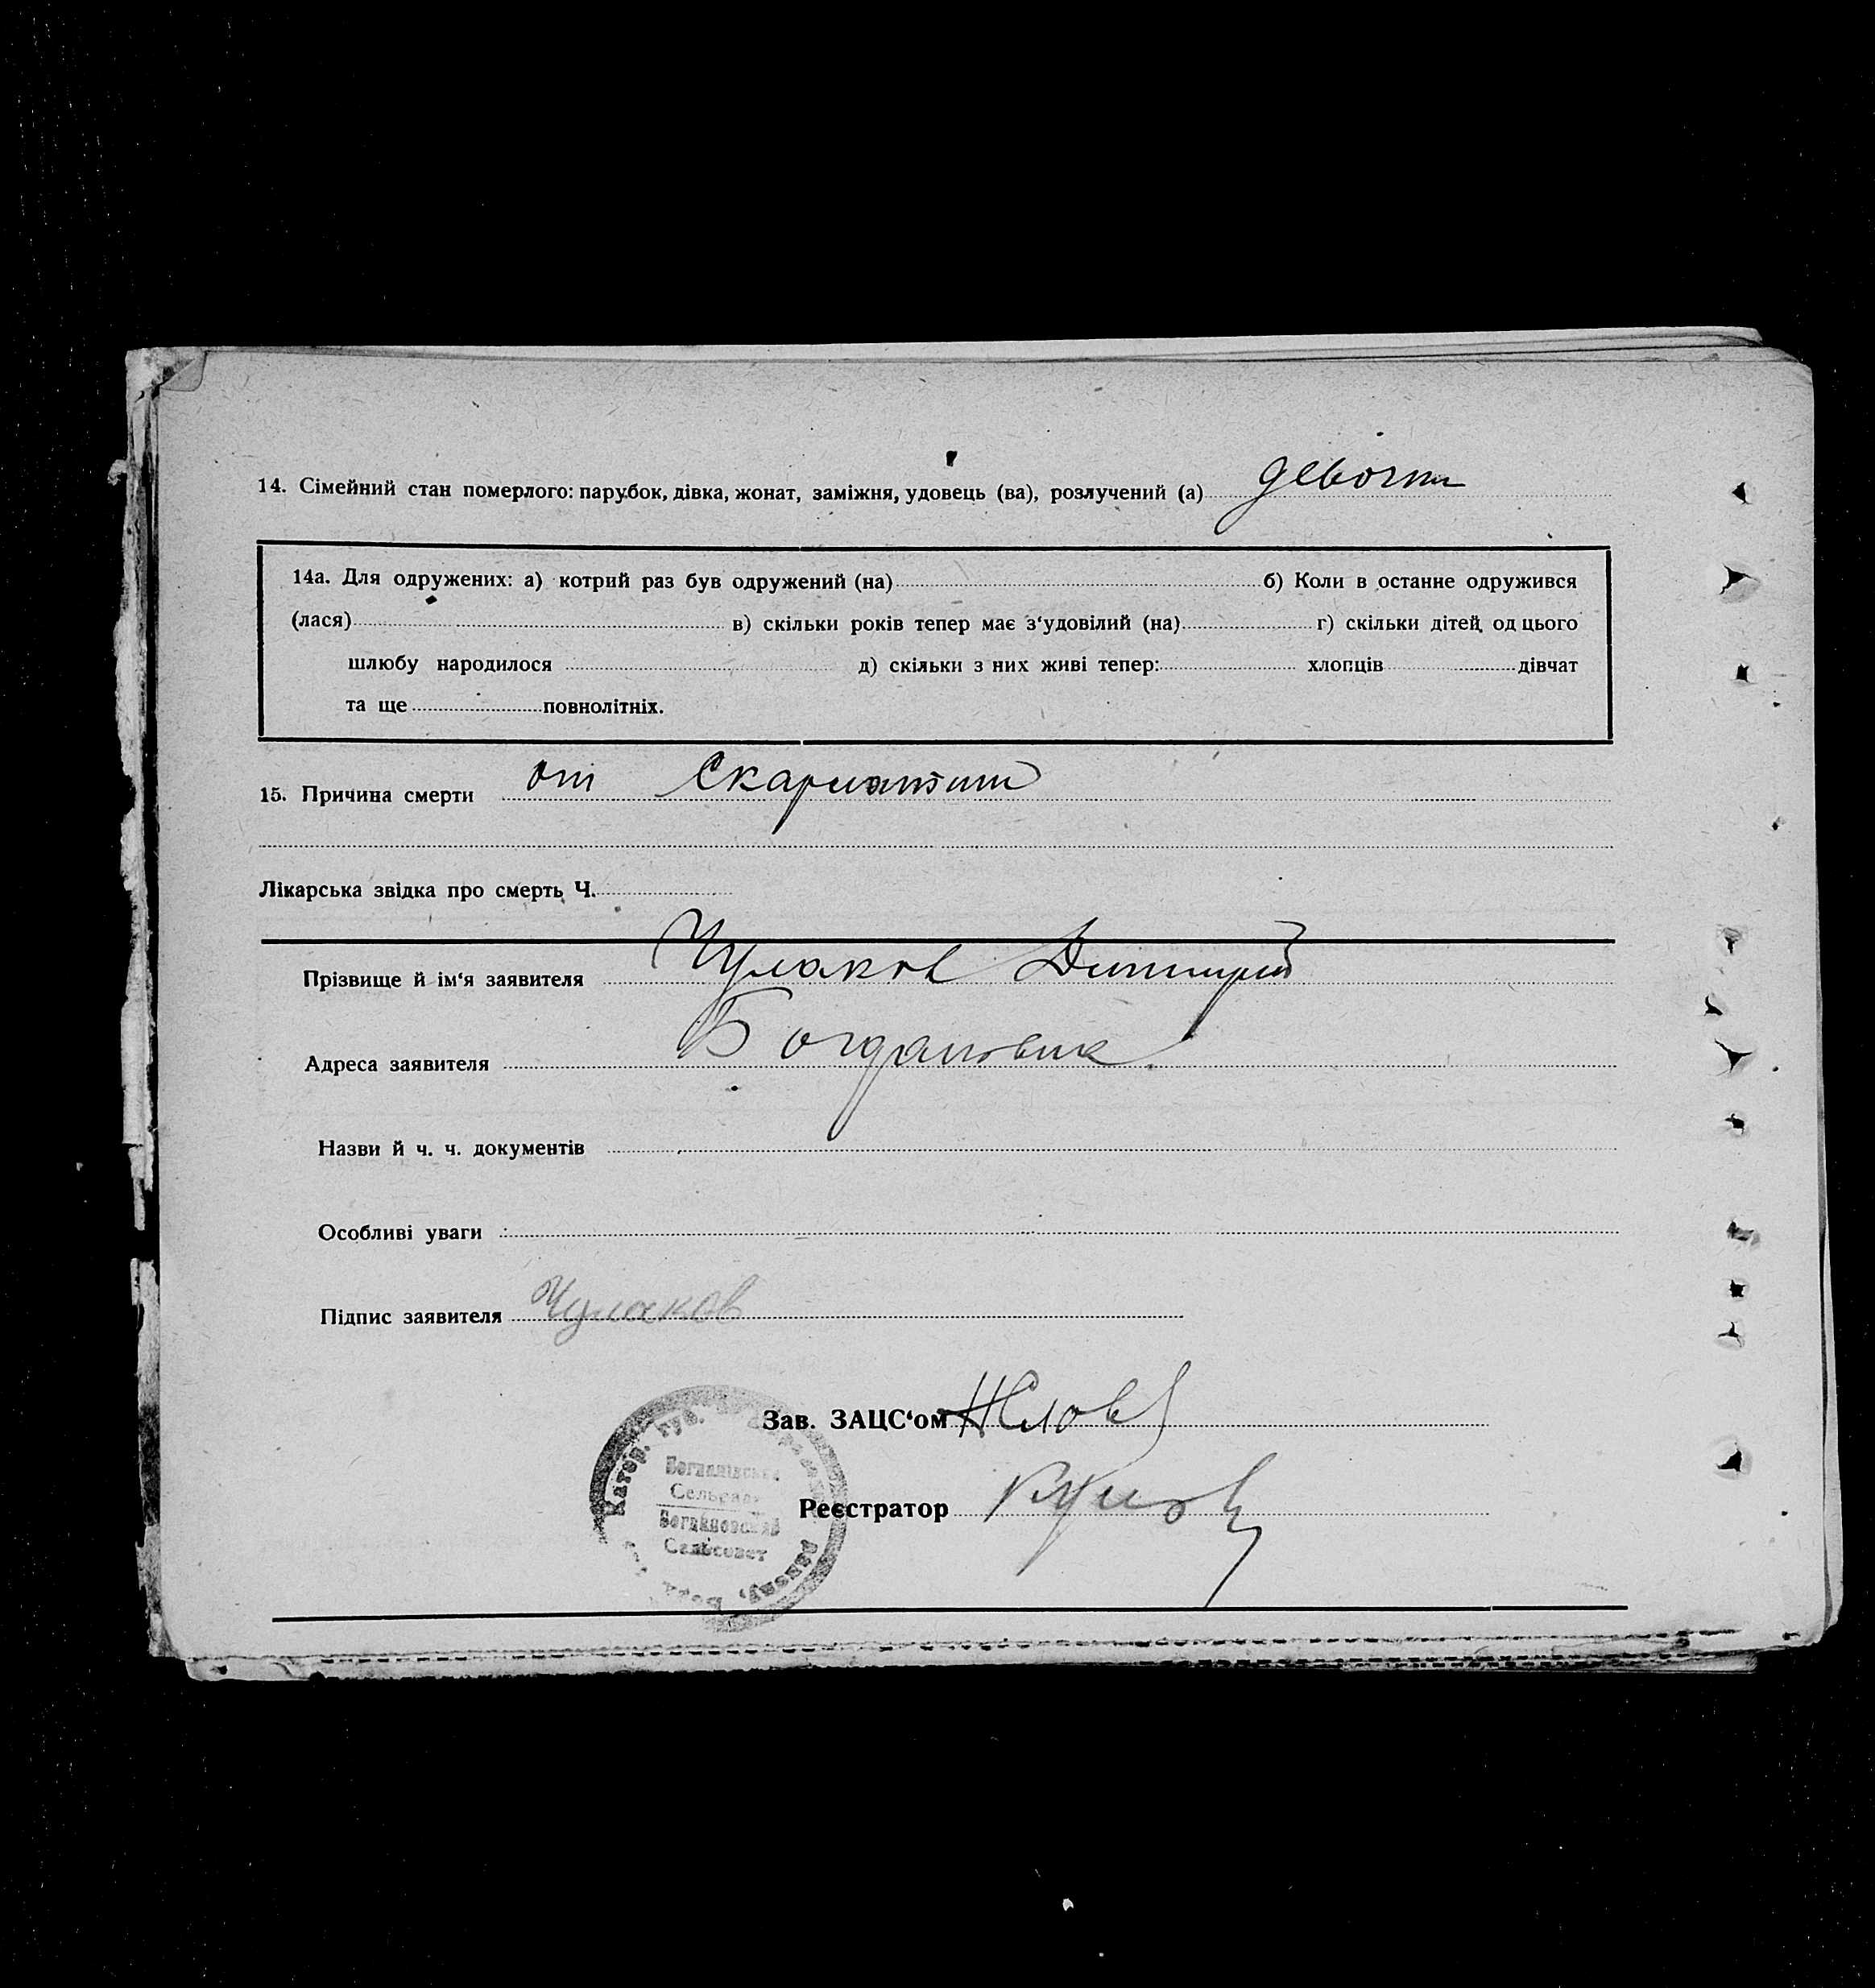 14. Сімейний стан померлого: парубок, дівка, жонат, заміжня, удовець (ва), розлучений (а)
14а. Для одружених: а) котрий раз був одружений (на) б) Коли в останне одружився
(лася) в) скільки років тепер має з‘удовілий (на) г) скільки дітей од цього
шлюбу народилося д) скільки з них живі тепер: хлопців дівчат
та ще повнолітніх.
15. Причина смерти от Скарлатини
Лікарська звідка про смерть Ч.
Прізвище й ім‘я заявителя Чулаков Дмитрий
Адреса заявителя Богдановка
Назви й ч. ч. документів
Особливі уваги
Підпис заявителя Чулаков
Зав. ЗАЦС‘ом
Реєстратор
Катер. губ.
Богданівська
Сельрада
Богдановский
Сельсовет